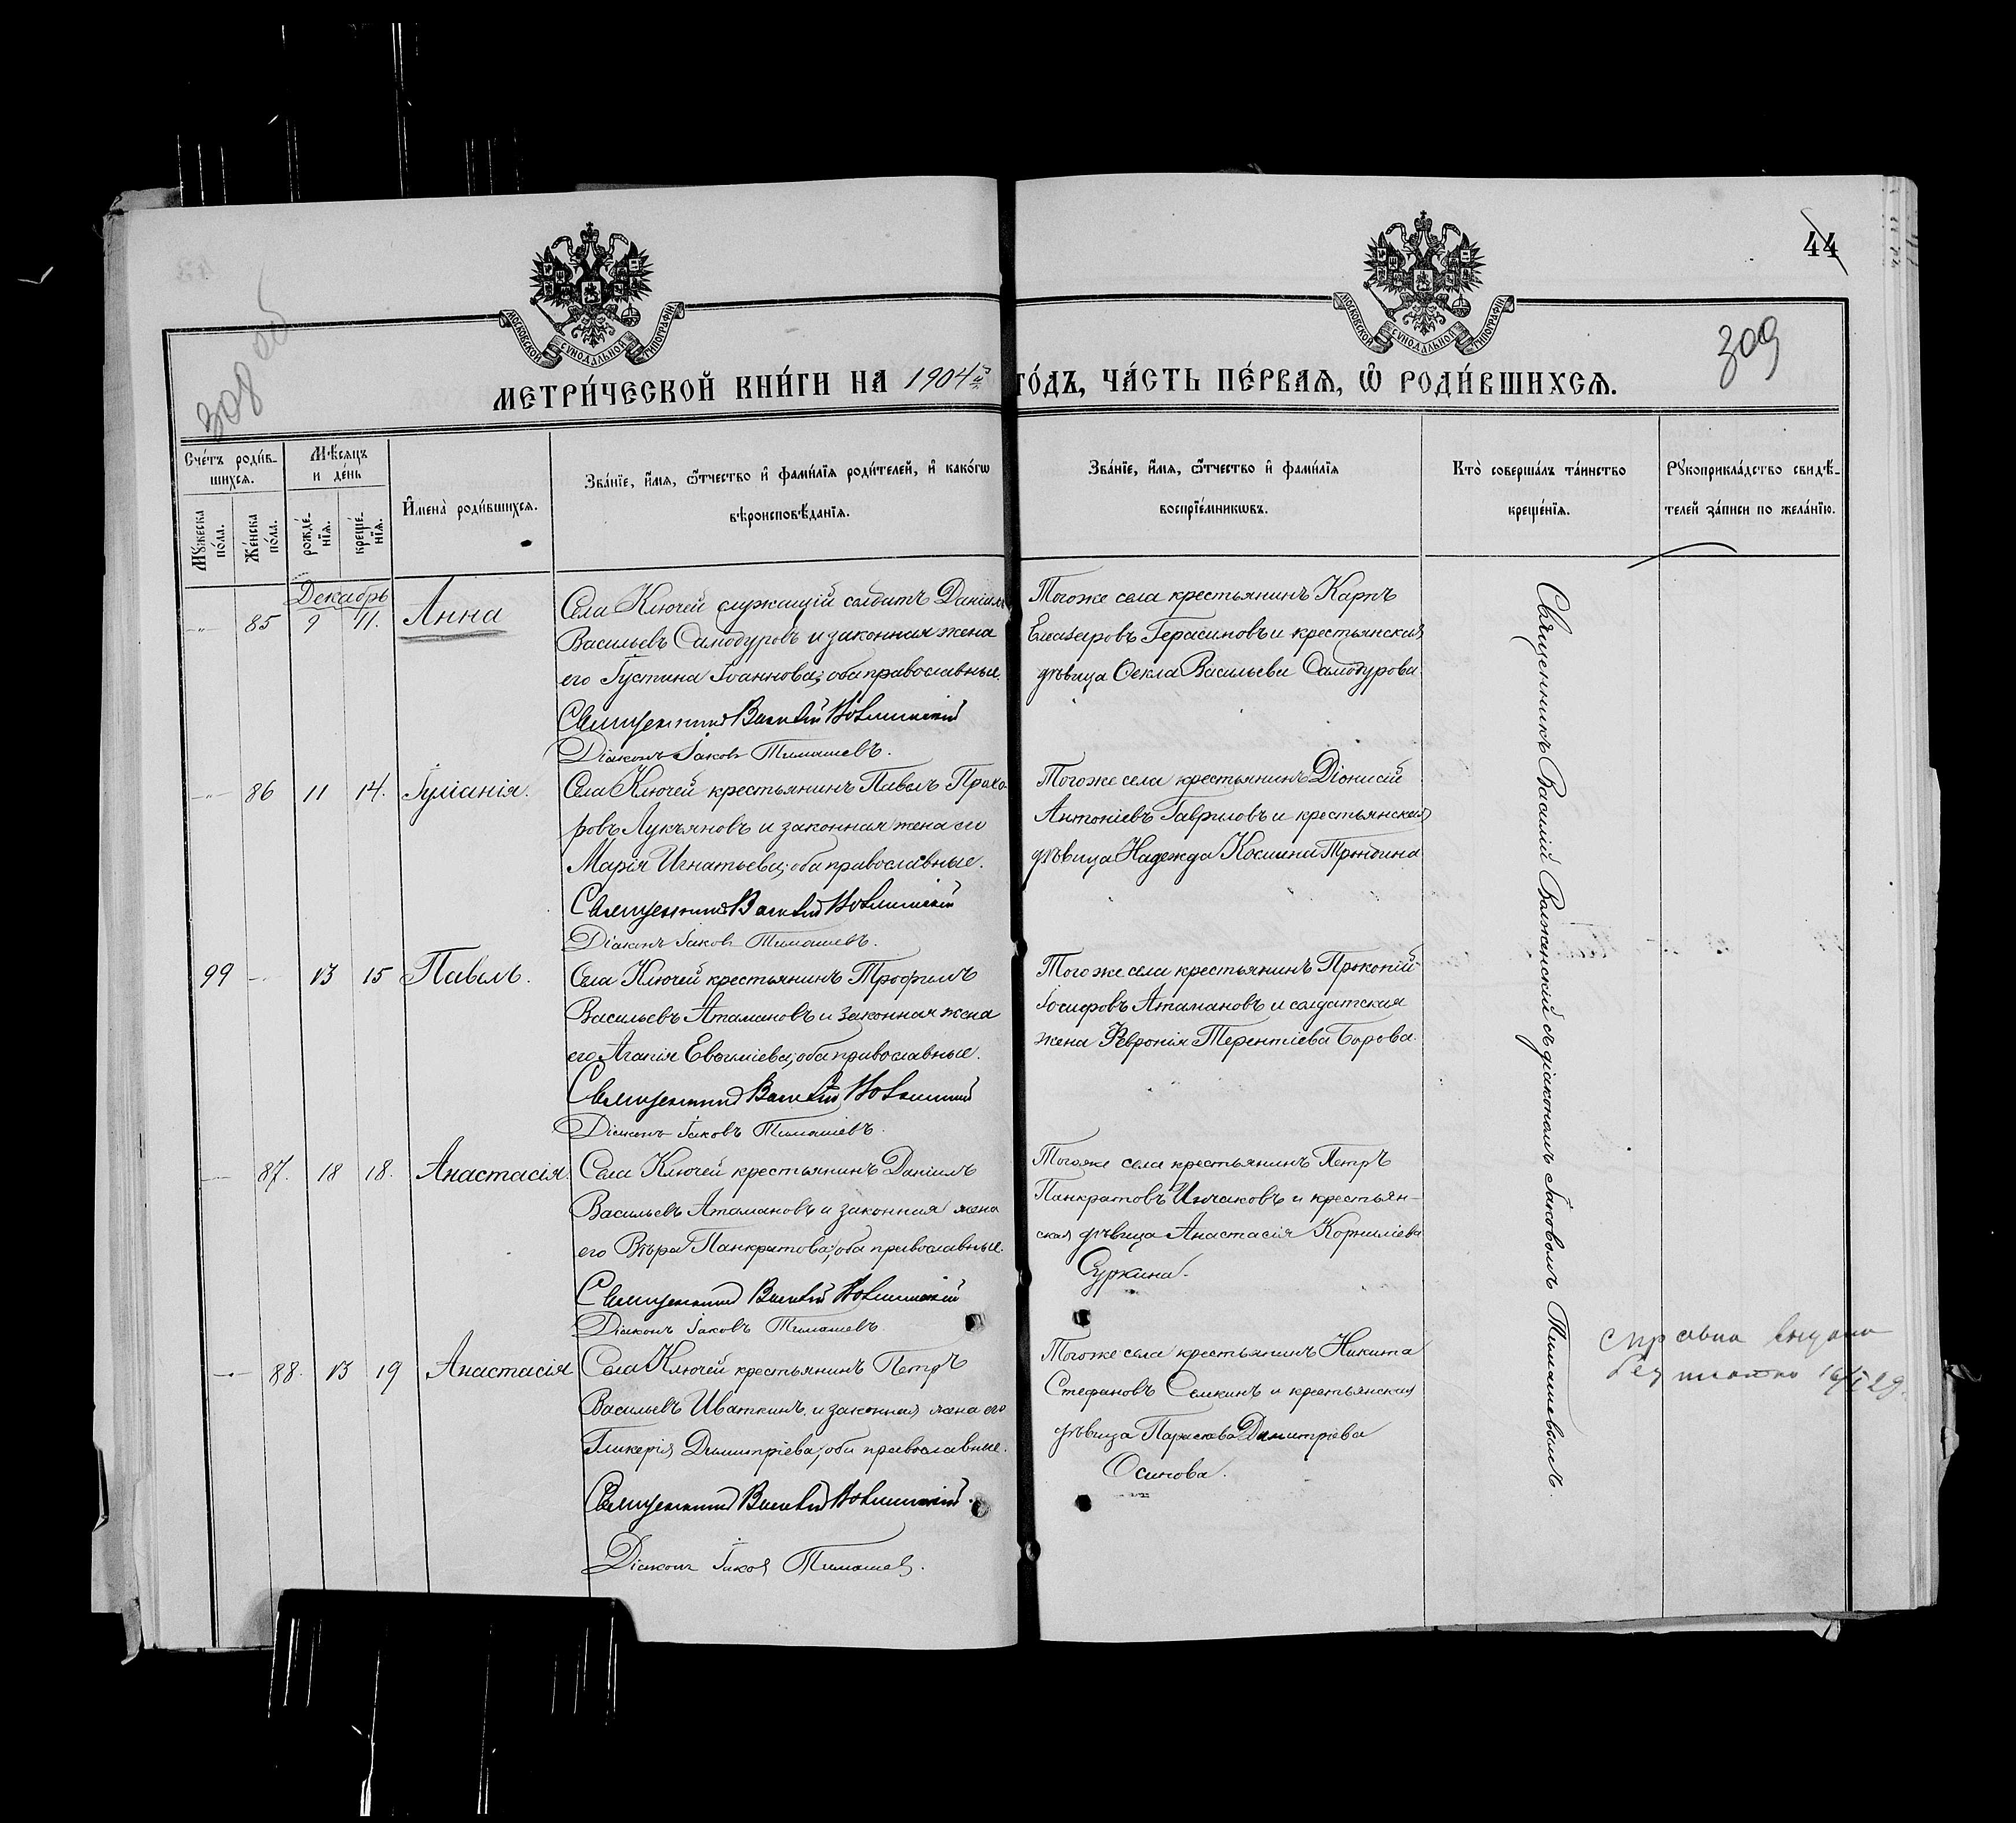 44
308 об
309
МОСКОВСКОЙ СѴНОДАЛЬНОЙ ТИПОГРАФІИ
МОСКОВСКОЙ СѴНОДАЛЬНОЙ ТИПОГРАФІИ
МЕТРИ́ЧЕСКОЙ КНИ́ГИ НА 1904й ГО́ДЪ, ЧА́СТЬ ПЕ́РВАѦ, Ѽ РОДИ́ВШИХСѦ.
Сче́тъ роди́в-
шихсѧ.
Мѹжеска по́ла.
Же́нска по́ла.
Мѣ́сѧцъ и де́нь
рожде́-
нїѧ.
креще́-
нїѧ.
И҆мена̀ роди́вшихсѧ.
Зва́нїе, и҆́мѧ, ѻ҆́тчество и҆ фами́лїѧ роди́телей, и҆ како́гѡ
вѣроисповѣ́данїѧ.
Зва́нїе, и҆́мѧ, ѻ҆́тчество и҆ фами́лїѧ
воспрїе́мникѡвъ.
Кто̀ соверша́лъ та́инство
креще́нїѧ.
Рѹкоприкла́дство свидѣ́-
телей за́писи по жела́нїю.
Декабрь
85 9 11. Анна
Села Ключей служащій солдатъ Даніилъ
Васильевъ Самодуровъ и законная жена
его Іустина Іоаннова; оба православные.
Священникъ Василій
Діаконъ Іаковъ Тимашевъ.
Тогоже села крестьянинъ Карпъ
Елеазаровъ Герасимовъ и крестьянская
дѣвица Ѳекла Васильева Самодурова
86 11 14. Іуліанія.
Села Ключей крестьянинъ Павелъ Прохо-
ровъ Лукъяновъ и законная жена его
Марія Игнатьева; оба православные.
Священникъ Василій
Діаконъ Іаковъ Тимашевъ.
Тогоже села крестьянинъ Діонисій
Антоніевъ Гавриловъ и крестьянская
дѣвица Надежда Космина
99 13 15 Павелъ.
Села Ключей крестьянинъ Трофимъ
Васильевъ Атамановъ и законная жена
его Агапія Евѳиміева; оба православные.
Священникъ Василій
Діаконъ Іаковъ Тимашевъ.
Тогоже села крестьянинъ Прокопій
Іосифовъ Атамановъ и солдатская
жена Февронія Терентіева Борова.
87. 18 18. Анастасія.
Села Ключей крестьянинъ Даніилъ
Васильевъ Атамановъ и законная жена
его Вѣра Панкратова; оба православные.
Священникъ Василій
Діаконъ Іаковъ Тимашевъ
Тогоже села крестьянинъ Петръ
Панкратовъ Инчаковъ и крестьян-
ская дѣвица Анастасія Корниліева
Суркина.
88. 13 19 Анастасія
Села Ключей крестьянинъ Петръ
Васильевъ Иваткинъ, и законная жена его
Гликерія Димитріева; оба православные.
Священникъ Василій
Діаконъ Іаковъ Тимашевъ.
Тогоже села крестьянинъ Никита
Стефановъ Семкинъ и крестьянская
дѣвица Параскева Димитріева
Осипова.
Священникъ Василій съ діакономъ Іаковомъ Тимашевымъ.
справка выдана
бесплатно 16/I 29.